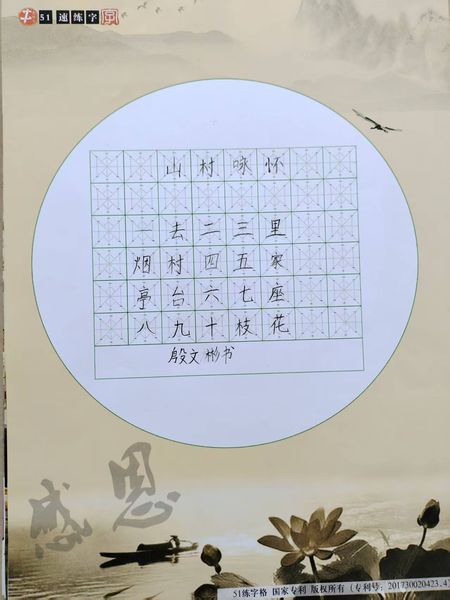 51速练字
山村咏怀
一去二三里
烟村四五家
亭台六七座
八九十枝花
殷文彬书
感恩
51练字格 国家专利 版权所有 (专利号: 201730020423.4)